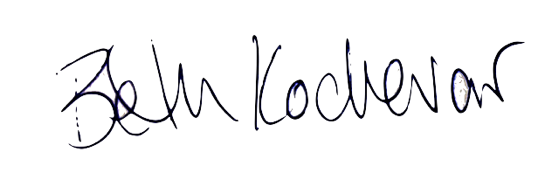 Beth Kochevar